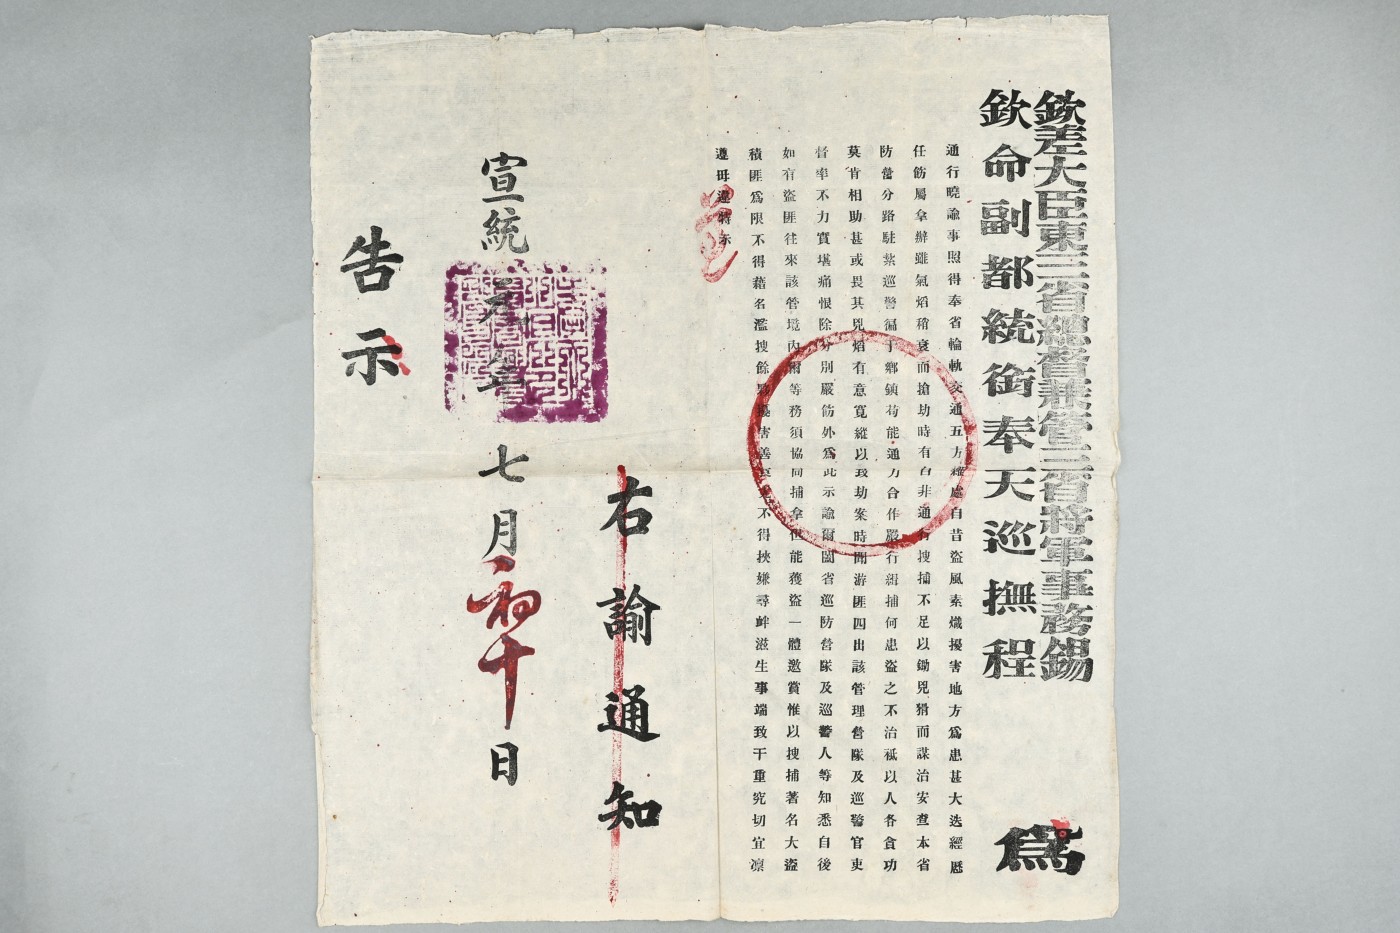 欽差大臣東三省總督兼管三省將軍事務錫
欽命副都統銜奉天巡撫程
爲
通行曉諭事照得奉省輪軌交通五方雜處自昔盜風素熾擾害地方爲患甚大迭經歷
任飭屬拿辦雖氣焰稍衰而搶劫時有自非通力搜捕不足以鋤兇猾而謀治安查本省
防營分路駐紮巡警徧于鄉鎮苟能通力合作嚴行緝捕何患盜之不治祗以人各貪功
莫肯相助甚或畏其兇焰有意寬縱以致劫案時聞游匪四出該管理營隊及巡警官吏
督率不力實堪痛恨除分別嚴飭外爲此示諭爾闔省巡防營隊及巡警人等知悉自後
如有盜匪往來該管境內爾等務須協同捕拿但能獲盜一體邀賞惟以搜捕著名大盜
積匪爲限不得藉名濫搜餘夥擾害善良尤不得挾嫌尋衅滋生事端致干重究切宜凛
遵毋違特示
右諭通知
宣統元年七月初十日
告示